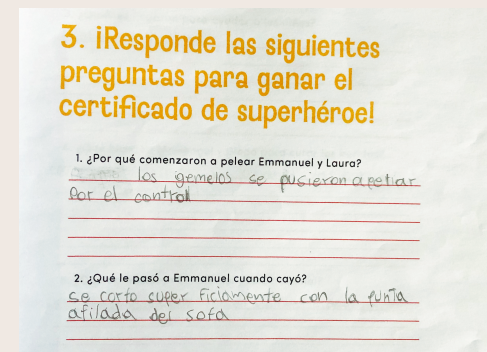 3. ¡Responde las siguientes
preguntas para ganar el
certificado de superhéroe!
1. ¿Por qué comenzaron a pelear Emmanuel y Laura?
los gemelos se pusieron a peliar
Por el control
2. ¿Qué le pasó a Emmanuel cuando cayó?
se corto super ficiamente con la punta
afilada del sofa